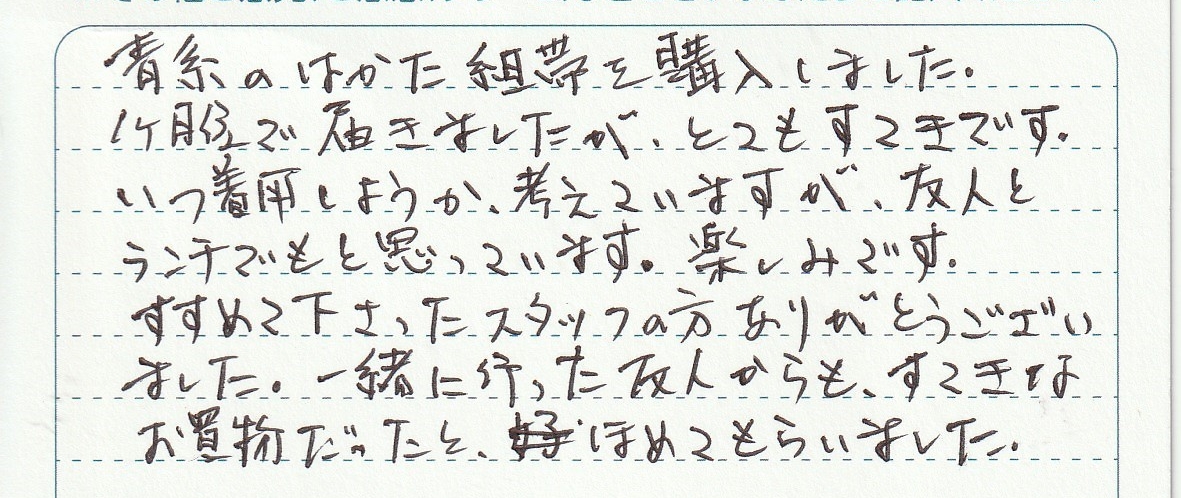 青系のはかた組帯を購入しました。
1ヶ月で届きましたが、とてもすてきです。
いつ着用しようか、考えていますが、友人と
ランチでもと思っています。楽しみです。
すすめて下さったスタッフの方ありがとうござい
ました。一緒に行った友人からも、すてきな
お買物だったと、ほめてもらいました。